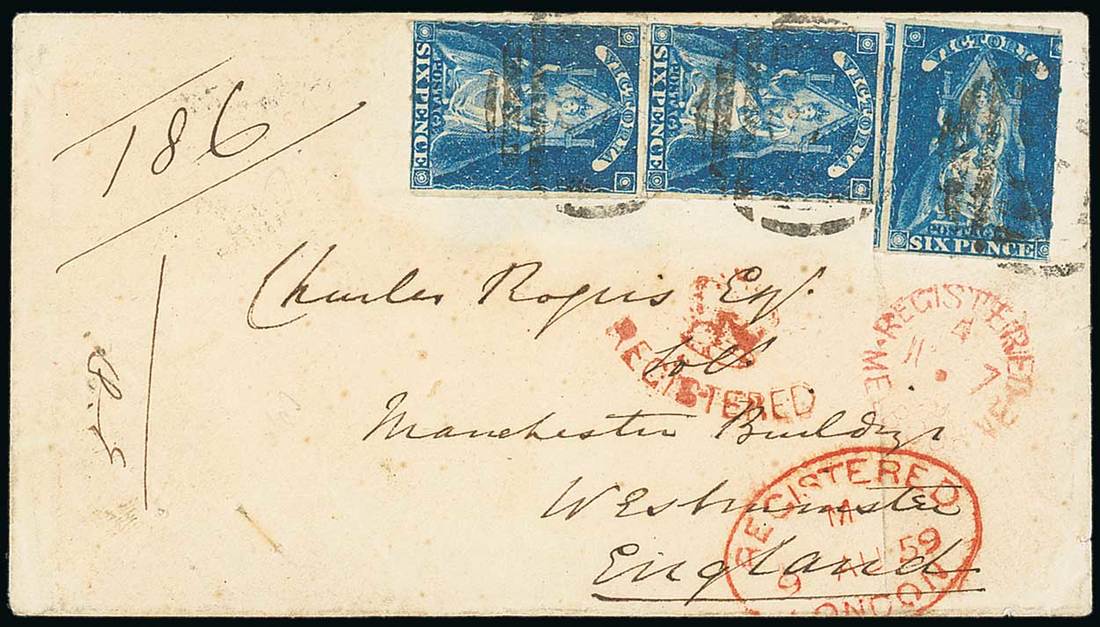 VICTORIA
POSTAGE
SIX PENCE
VICTORIA
POSTAGE
SIX PENCE
VICTORIA
POSTAGE
SIX PENCE
186
Charles Rogers Esqr.
REGISTERED
Manchester Buildings
Westminster
England
REGISTERED
REGISTERED
M
9 AU 59
LONDON